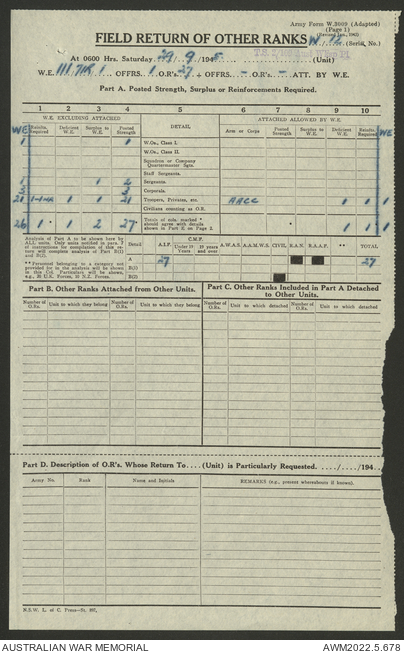 Army Form W.3009 (Adapted)
(Page 1)
(Revised Jan., 1945)
FIELD RETURN OF OTHER RANKS W (Serial No.)
At 0600 Hrs. Saturday 29 / 9 / 1945 (Unit)
W.E. III/ OFFRS. OR's. 27 + OFFRS. - OR's. - ATT. BY W.E.
Part A. Posted Strength, Surplus or Reinforcements Required.
W.E. EXCLUDING ATTACHED ATTACHED ALLOWED BY W.E.
1 2 3 4 5 6 7 8 9 10
WE Reinfts. Required Deficient W.E. Surplus to W.E. Posted Strength DETAIL Arms or Corps Posted Strength Surplus to W.E. Deficient W.E. Reinfts. Required WE
1 1 W.Os., Class I.
W.Os., Class II.
Squadron or Company Quartermaster Sgts.
Staff Sergeants.
1 Sergeants.
Corporals.
21 1 1 21 Troopers, Privates, etc. AACC 1 1 1
Civilians counting as O.R.
26 1 1 2 27 Totals of cols. marked * should agree with details shown in Part E, on Page 2. 1 1 1
Analysis of Part A to be shown here by ALL units. Only units notified in para. 7 of instructions for compilation of this return will complete analysis of Part B(1) and B(2).
** Personnel belonging to a category not provided for in the analysis will be shown in this Col. Particulars will be shown, e.g., 20 U.K. Forces, 10 N.Z. Forces.
Detail A.I.F. C.M.F. Under 19 Years 19 years and over A.W.A.S. A.A.M.W.S. CIVIL R.A.N. R.A.A.F. ** TOTAL
A 27 27
B(1)
B(2)
Part B. Other Ranks Attached from Other Units.
Part C. Other Ranks Included in Part A Detached to Other Units.
Number of O.Rs. Unit to which they belong Number of O.Rs. Unit to which they belong Number of O.Rs. Unit to which detached Number of O.Rs. Unit to which detached
Part D. Description of O.R's. Whose Return To.... (Unit) is Particularly Requested. ..../..../194..
Army No. Rank Name and Initials REMARKS (e.g., present whereabouts if known).
N.S.W. L. of C. Press—
AUSTRALIAN WAR MEMORIAL AWM2022.5.678